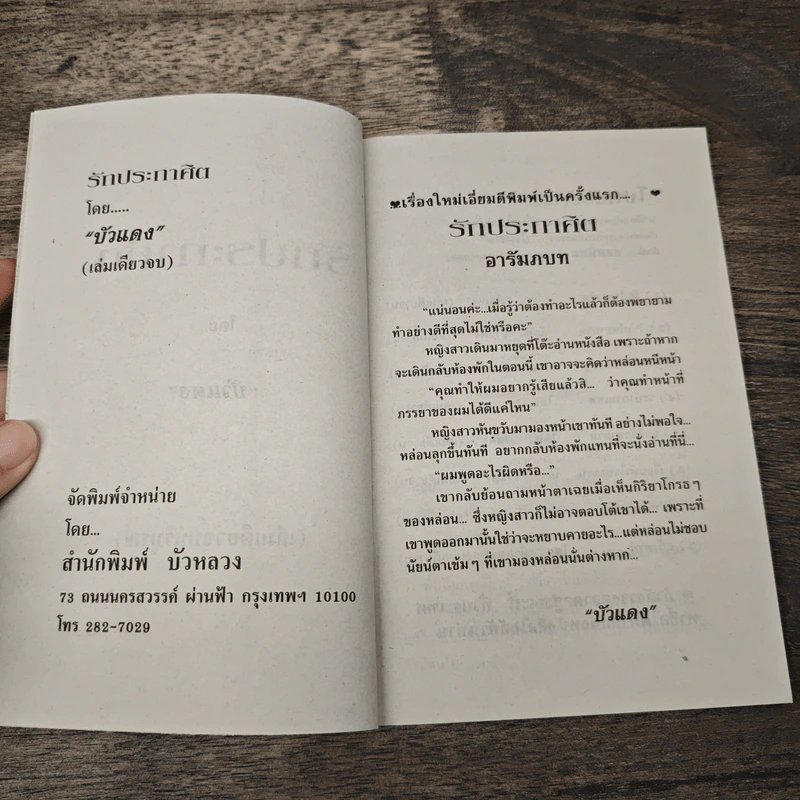 รักประกาศิต
โดย.....
“บัวแดง”
(เล่มเดียวจบ)
จัดพิมพ์จำหน่าย
โดย...
สำนักพิมพ์ บัวหลวง
73 ถนนนครสวรรค์ ผ่านฟ้า กรุงเทพฯ 10100
โทร 282-7029
♥...เรื่องใหม่เอี่ยมตีพิมพ์เป็นครั้งแรก.... ♥
รักประกาศิต
อารัมภบท
“แน่นอนค่ะ...เมื่อรู้ว่าต้องทำอะไรแล้วก็ต้องพยายาม
ทำอย่างดีที่สุดไม่ใช่หรือคะ”
หญิงสาวเดินมาหยุดที่โต๊ะอ่านหนังสือ เพราะถ้าหาก
จะเดินกลับห้องพักในตอนนี้ เขาอาจจะคิดว่าหล่อนหนีหน้า
“คุณทำให้ผมอยากรู้เสียแล้วสิ... ว่าคุณทำหน้าที่
ภรรยาของผมได้ดีแค่ไหน”
หญิงสาวหันขวับมามองหน้าเขาทันที อย่างไม่พอใจ...
หล่อนลุกขึ้นทันที อยากกลับห้องพักแทนที่จะนั่งอ่านที่นี่...
“ผมพูดอะไรผิดหรือ...”
เขากลับย้อนถามหน้าตาเฉยเมื่อเห็นกิริยาโกรธ ๆ
ของหล่อน... ซึ่งหญิงสาวก็ไม่อาจตอบโต้เขาได้... เพราะที่
เขาพูดออกมานั้นใช่ว่าจะหยาบคายอะไร...แต่หล่อนไม่ชอบ
นัยน์ตาเข้ม ๆ ที่เขามองหล่อนนั่นต่างหาก...
“บัวแดง”